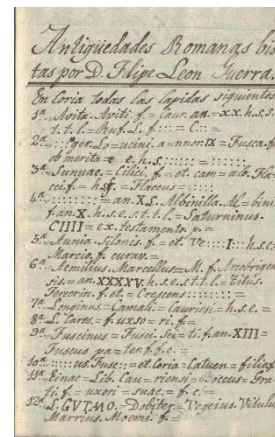 Antigüedades Romanas bis
tas por D. Felipe Leon Guerra.
En Coria todas las lapidas siguientes
1ª Avita. Aviti. f. = Caur. an = XX. h.s.s.
t. t. l. = Ruf. L. f. = C.
2ª ger. Lo = ucini. a = nnor. IX = Fusca. f.
ob merita = e. h. s.
3ª Sunuae. = Cilici. f. = et. cam = alo. Fla
cci. f = Flaccus
4ª = an. XL. Albinilla. Al = bini
f. an. X. h. s. e. s. t. t. l. = Saturninus.
CIIII = ex. testamento. p. =
5ª Annia. Silonis. f. = et. I h. s. e.
Marcio. f. curav. =
6ª Aemilius. Marcellus = M. f. Arcobrigen
sis = an. XXXXV. h. s. e. s. t. t. l. = Titus.
f. = et = Crescens
7ª Longinus = Camali. = Cauriesi = h. s. e. =
8ª L. tares. f. uxso = ri. f. =
9ª Fuscinus = Fusci. = ti. f. an. XIII =
Fuscus pa = ter. f. c. =
10ª us. Fusc = et. Coria = Catuen = filiaf
11ª Einae = Lib. Cau = riensi = Boccus = Gra
ti. f. = uxori = suae. = f. c. =
12ª L. GVTMO. = Dobiter = Vegeius. Vitulu
Marrius. Moemi. f. =